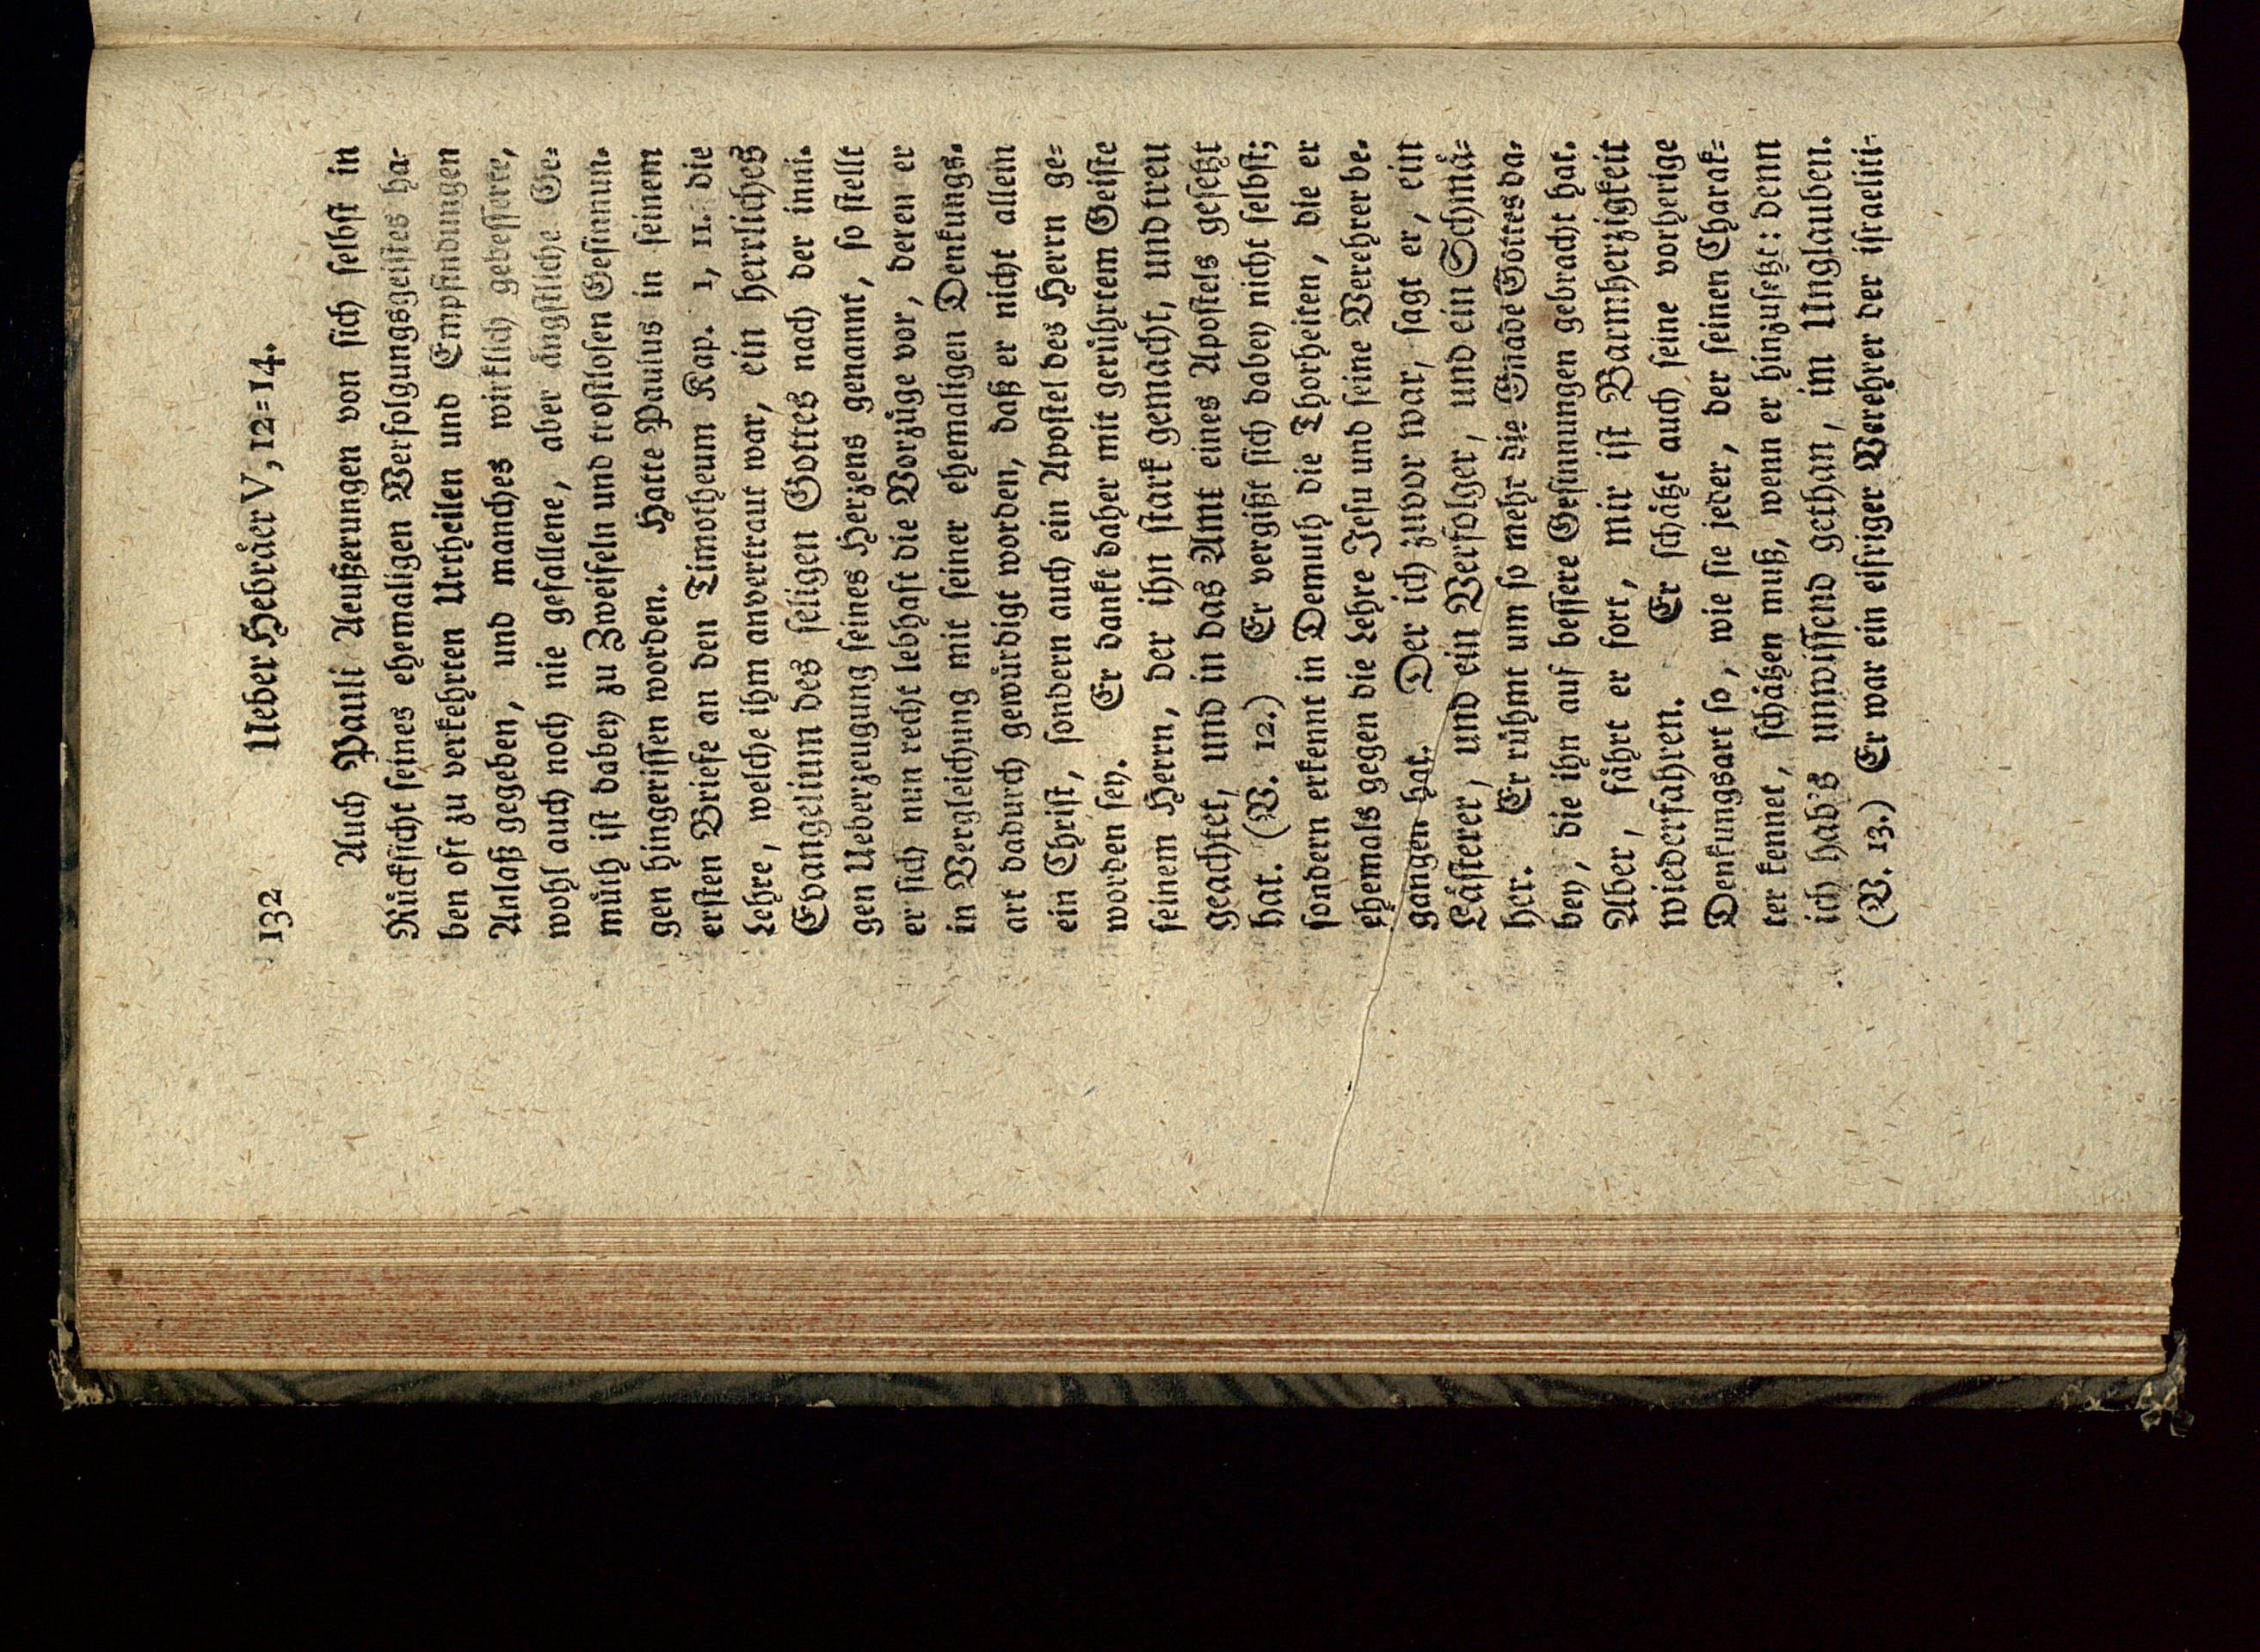 132 Ueber Hebråer V, 12=14.
Auch Pauli Aeußerungen von ſich ſelbſt in
Růckſicht ſeines ehemaligen Verfolgungsgeiſtes ha-
ben oft zu verkehrten Urtheilen und Empfindungen
Anlaß gegeben, und manches wirklich gebeſſerte,
wohl auch noch nie gefallene, aber ångſtliche Ge=
můth iſt dabey zu Zweifeln und troſtloſen Geſinnun-
gen hingeriſſen worden. Hatte Paulus in ſeinem
erſten Briefe an den Timotheum Kap. 1, 11. die
Lehre, welche ihm anvertraut war, ein herrliches
Evangelium des ſeligen Gottes nach der inni-
gen Ueberzeugung ſeines Herzens genannt, ſo ſtellt
er ſich nun recht lebhaft die Vorzůge vor, deren er
in Vergleichung mit ſeiner ehemaligen Denkungs-
art dadurch gewůrdigt worden, daß er nicht allein
ein Chriſt, ſondern auch ein Apoſtel des Herrn ge=
worden ſey. Er dankt daher mit gerůhrtem Geiſte
ſeinem Herrn, der ihn ſtark gemacht, und treu
geachtet, und in das Amt eines Apoſtels geſetzt
hat. (V. 12.) Er vergißt ſich dabey nicht ſelbſt;
ſondern erkennt in Demuth die Thorheiten, die er
ehemals gegen die Lehre Jeſu und ſeine Verehrer be-
gangen hat. Der ich zuvor war, ſagt er, ein
Låſterer, und ein Verfolger, und ein Schmå=
her. Er růhmt um ſo mehr die Gnade Gottes da-
bey, die ihn auf beſſere Geſinnungen gebracht hat.
Aber, fåhrt er fort, mir iſt Barmherzigkeit
wiederfahren. Er ſchåtzt auch ſeine vorherige
Denkungsart ſo, wie ſie jeder, der ſeinen Charak=
ter kennet, ſchåtzen muß, wenn er hinzuſetzt: denn
ich hab's unwiſſend gethan, im Unglauben.
(V. 13.) Er war ein eifriger Verehrer der iſraeliti-